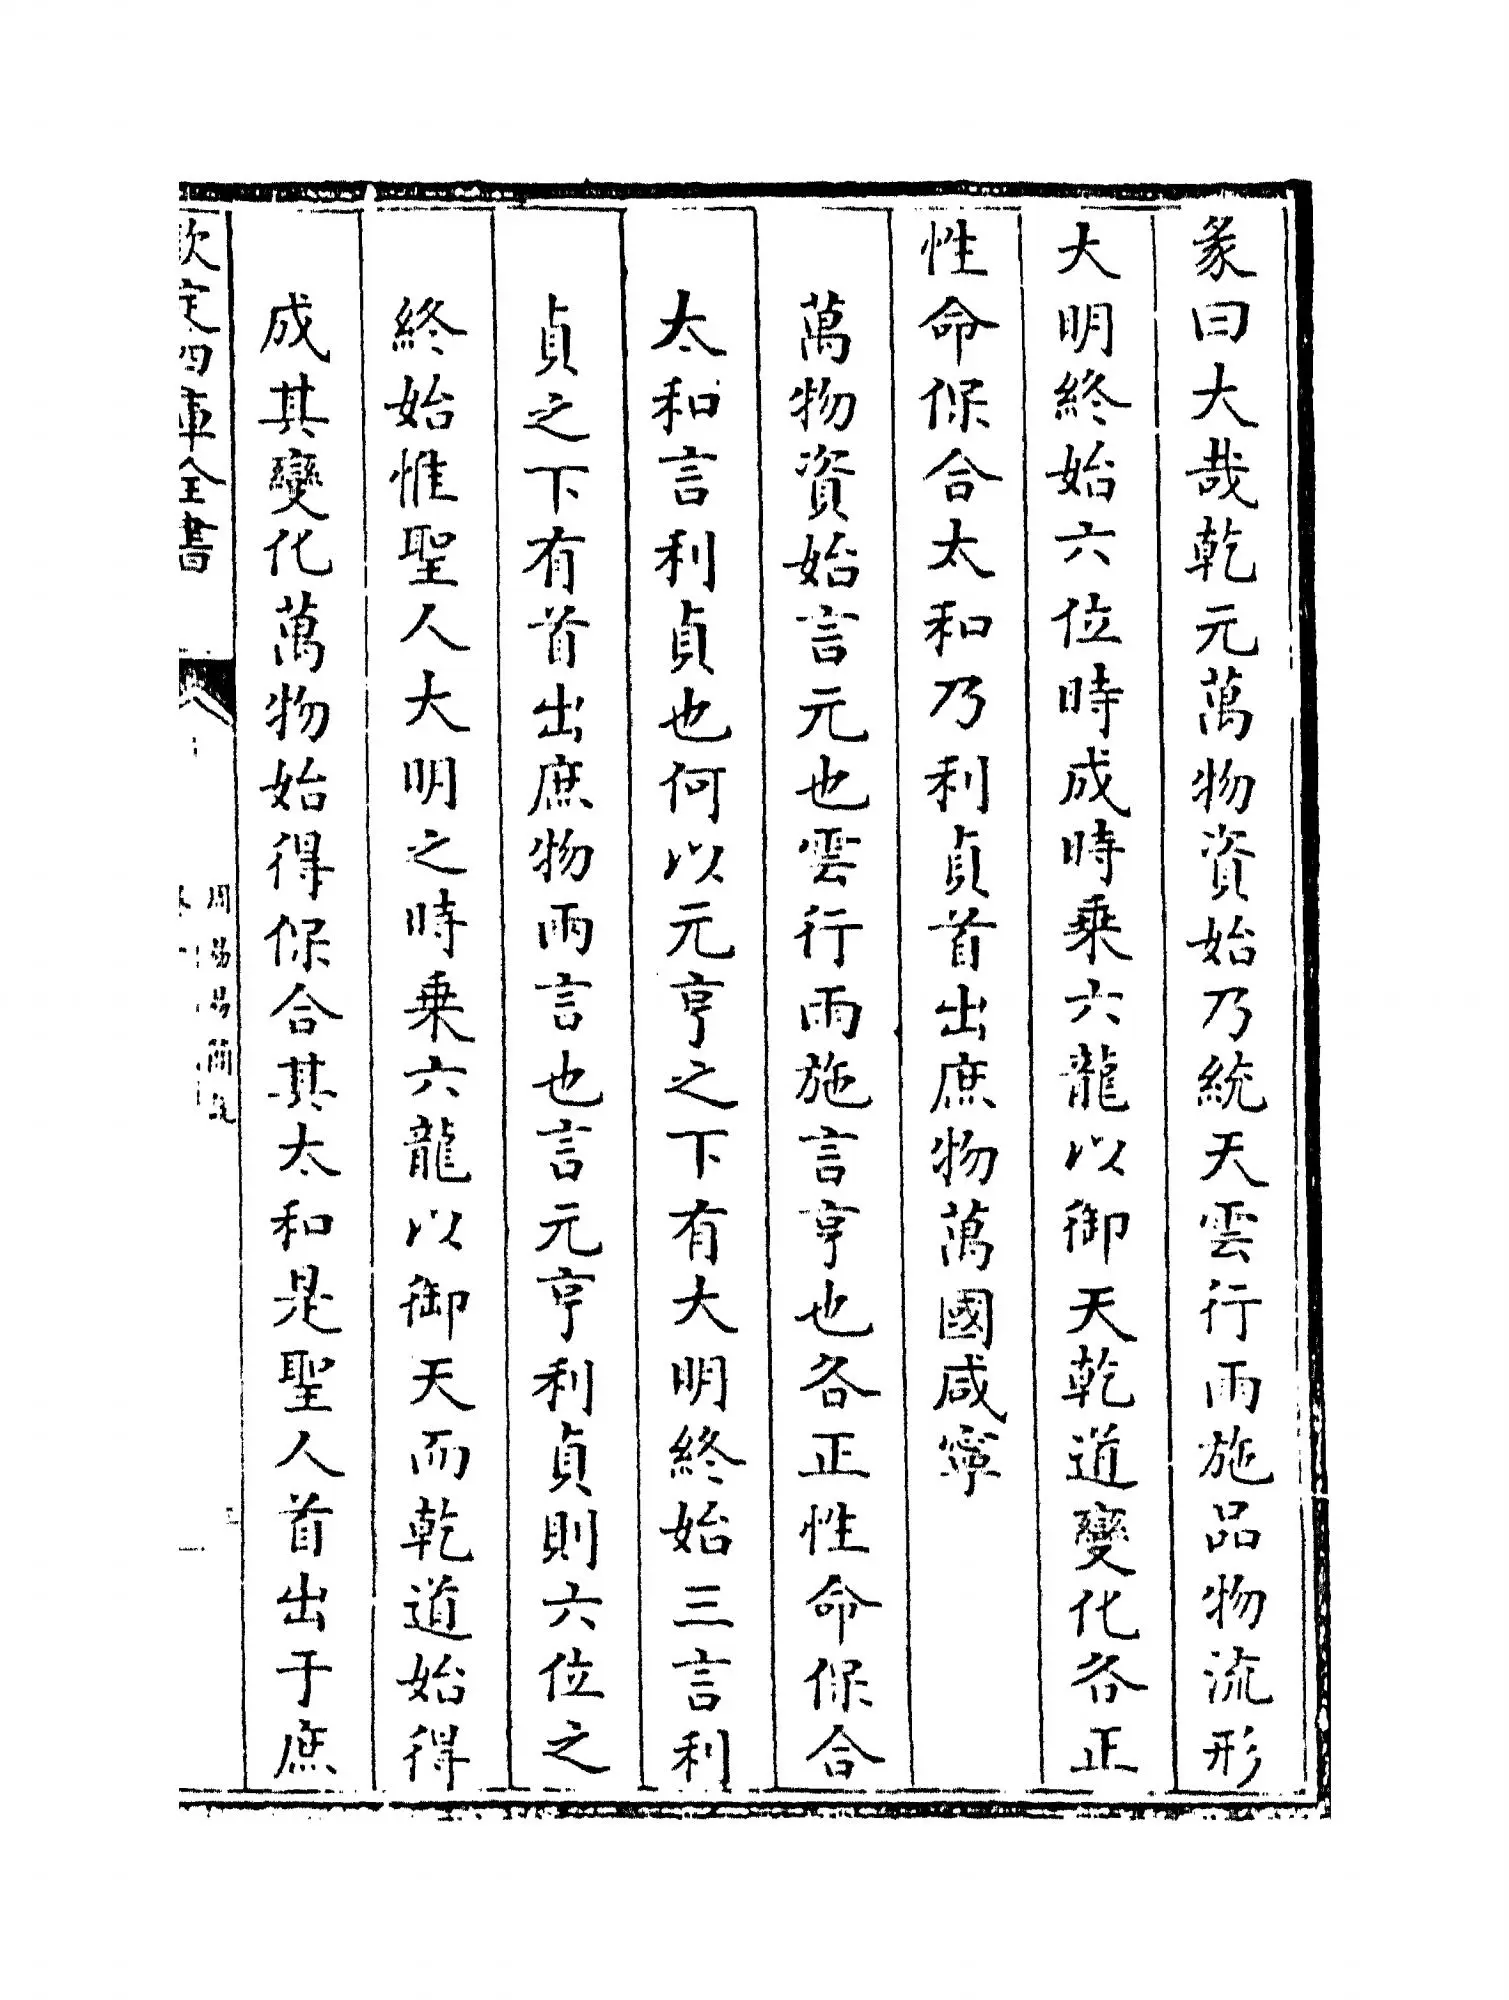 彖曰大哉乾元萬物資始乃統天雲行雨施品物流形
大明終始六位時成時乗六龍以御天乾道變化各正
性命保合太和乃利貞首出庶物萬國咸寧
萬物資始言元也雲行雨施言亨也各正性命保合
太和言利貞也何以元亨之下有大明終始三言利
貞之下有首出庶物兩言也言元亨利貞則六位之
終始惟聖人大明之時乗六龍以御天而乾道始得
成其變化萬物始得保合其太和是聖人首出于庶
欽定四庫全書
周易易簡説